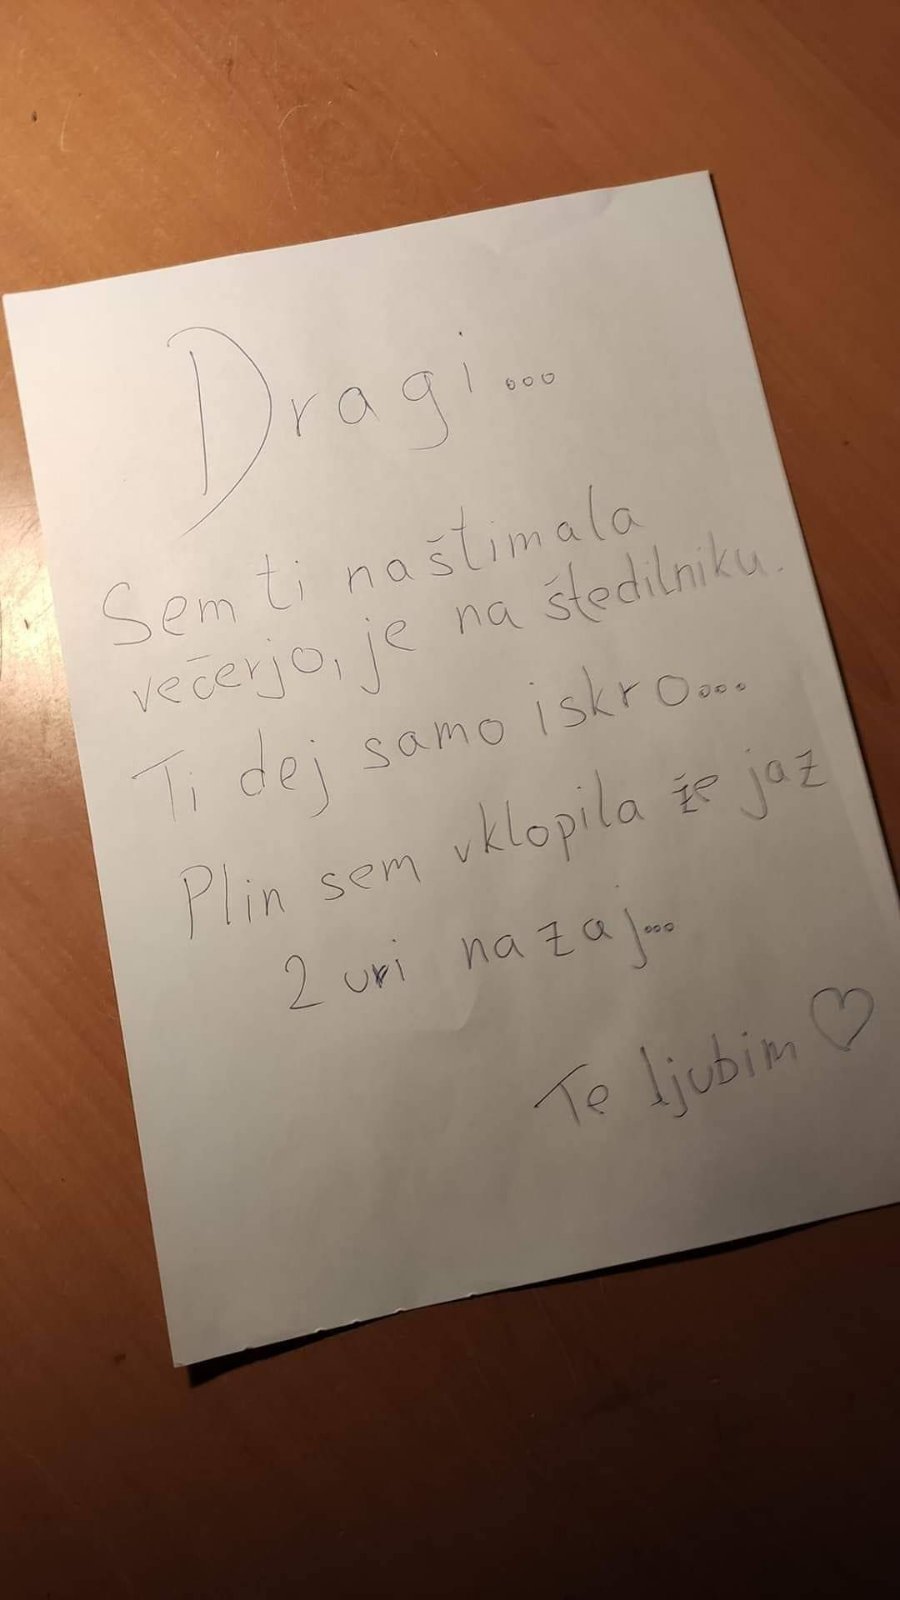 Dragi...
Sem ti naštimala
večerjo, je na štedilniku.
Ti dej samo iskro...
Plin sem vklopila že jaz
2 uri nazaj...
Te ljubim ♡